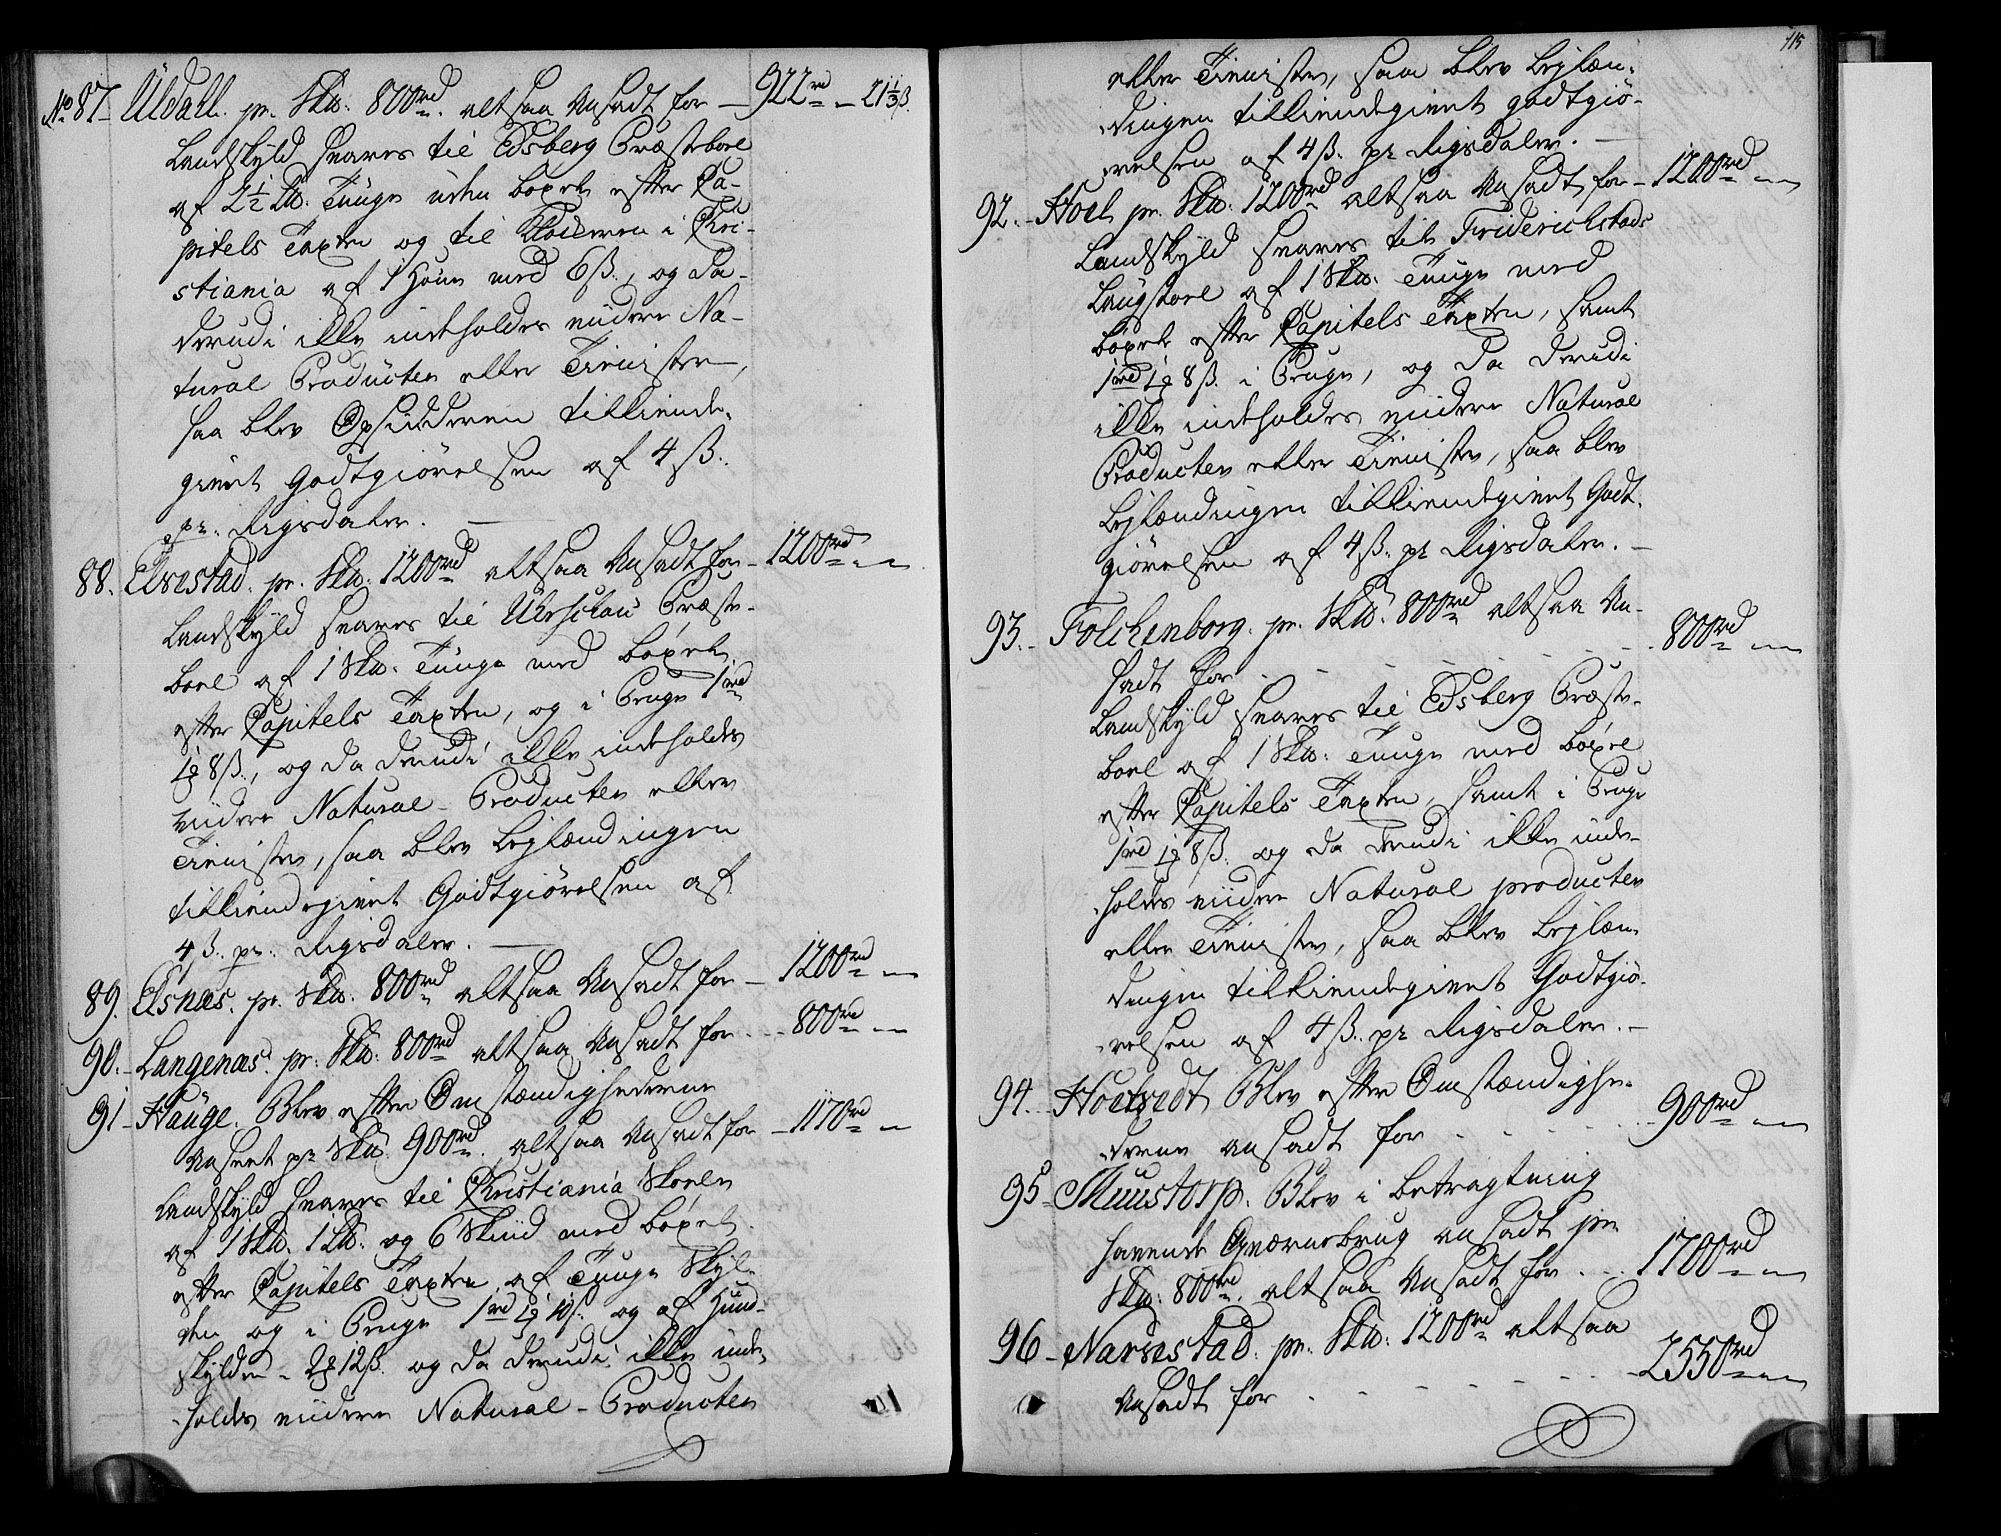 No 87. Üldahl. pr. Skd: 800rd. altsaa Ansadt for — 922rd — 21⅓ ß.
Landskyld svares til Edsberg Præsteboel
af 2½ Lb. Tunge uden böxel efter Ca-
pitels Taxten og til Klosteret i Chri-
stiania af 1 Huun med 6 ß., og da
derudi ikke indeholdes videre Na-
tural Producter eller Tienister,
saa blev Opsidderen tilkiende-
givet Godtgiörelsen af 4 ß.
pr. Rigsdaler. —
88. Elvestad. pr. Skd: 1200rd altsaa Ansadt for — 1200rd — —
Landskyld svares til Præste-
boel af 1 Skd. Tunge med böxel
efter Capitels Taxten, og i Penge 1rd
1 8 ß., og da derudi ikke indeholdes
videre Natural-Producter eller
Tienister, saa blev Leylændingen
tilkiendegivet Godtgiörelsen af
4 ß. pr. Rigsdaler. —
89. Elsnæs. pr. Skd. 800rd altsaa Ansadt for — 1200rd — —
90. Langenæs. pr. Skd. 800rd altsaa Ansadt for — 800rd — —
91. Hauge. Blev efter Omstændighederne
Anseet pr Skd. 900rd. altsaa Ansadt for — 1170rd — —
Landskyld svares til Christiania Skoele
af 1 Skd. 1 Lb. og 6 Skind med böxel
efter Capitels Taxten af Tunge Skyl-
den og i Penge 1rd 1 og af Hud-
skylden - 2 12 ß. og da derudi ikke inde-
holdes videre Natural-Producter
115
eller Tienister, saa blev Leylæn-
dingen tilkiendegivet godtgiö-
relsen af 4 ß. pr Rigsdaler. —
92. Hoel pr. Skd. 1200rd altsaa Ansadt for — 1200rd — —
Landskyld svares til Friderichstads
Laugstoel af 1 Skd. Tunge med
böxel efter Capitels Taxten, samt
1rd 1 8 ß. i Penge, og da derudi
ikke indeholdes videre Natural
Producter eller Tieniste, saa blev
Leylændingen tilkiendegivet Godt-
giörelsen af 4 ß. pr Rigsdaler. —
93. Folchenborg. pr. Skd. 800rd altsaa An-
sadt for — 800rd — —
Landskyld svares til Edsberg Præste-
boel af 1 Skd. Tunge med böxel
efter Capitels Taxten, samt i Penge
1rd 1 8 ß. og da derudi ikke inde-
holdes videre Natural producter
eller Tienister, saa blev Leylæn-
dingen tilkiendegivet Godtgiö-
relsen af 4 ß. pr Rigsdaler. —
94. Blev efter Omstændighe-
derne ansadt for — 900rd — —
95. Muustorp. Blev i betragtning
havende Qværnebrug ansadt pr
Skd. 800rd. altsaa Ansadt for — 1700rd — —
96. Narvestad. pr. Skd. 1200rd altsaa
Ansadt for — 2550rd — —